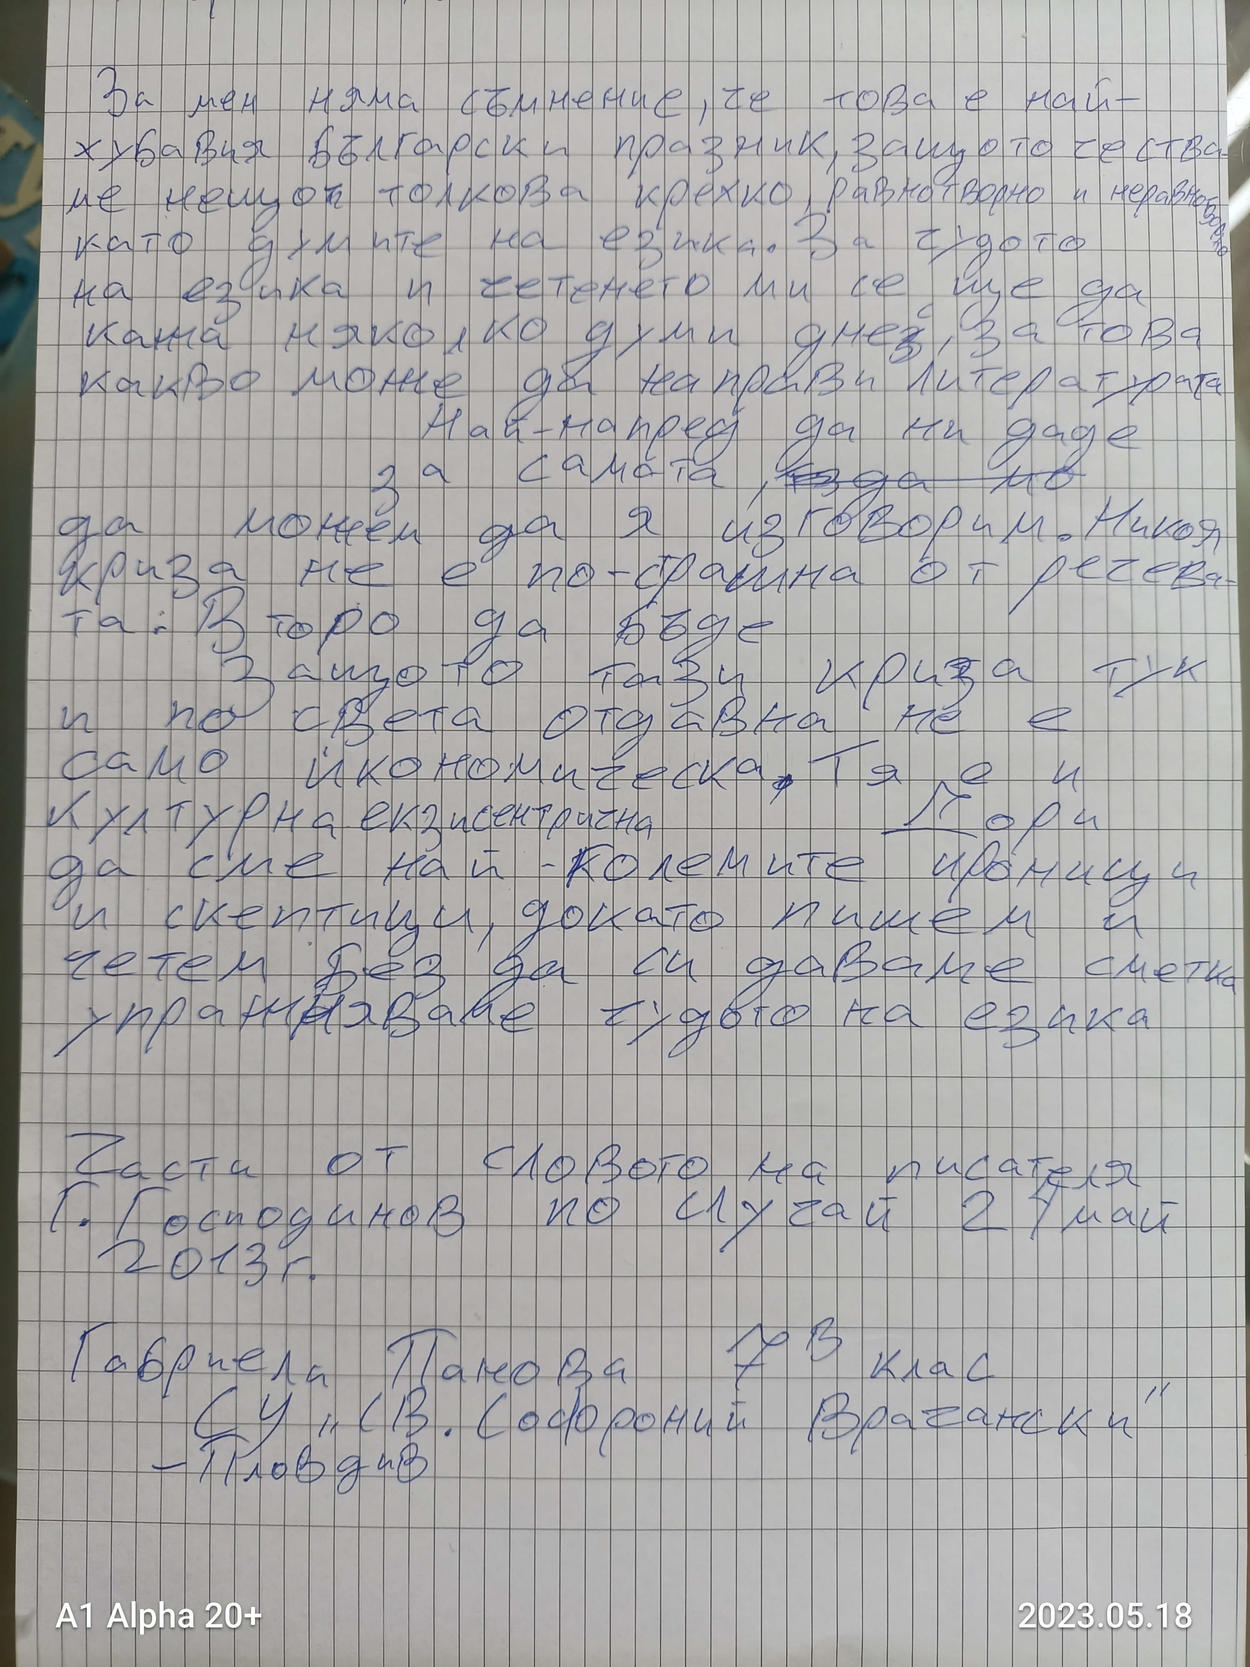 За мен няма съмнение, че това е най-
хубавия български празник, защото чества-
ме нещо толкова крехко, равнотворно и неравнотворно
като думите на езика. За чудото
на езика и четенето ми се ще да
кажа няколко думи днес, за това
какво може да направи литературата
Най-напред да ни даде
за самата,
да можем да я изговорим. Никоя
криза не е по-страшна от речева-
та. Второ да бъде
Защото тази криза тук
и по света отдавна не е
само икономическа. Тя е и
културна екзисентрична Дори
да сме най-големите ироници
и скептици, докато пишем и
четем без да си даваме сметка
упражняваме чудото на езика
Части от словото на писателя
Г. Господинов по случай 24 май
2013г.
Габриела Панова 7 В клас
СУ „Св. Софроний Врачански"
-Пловдив
A1 Alpha 20+
2023.05.18